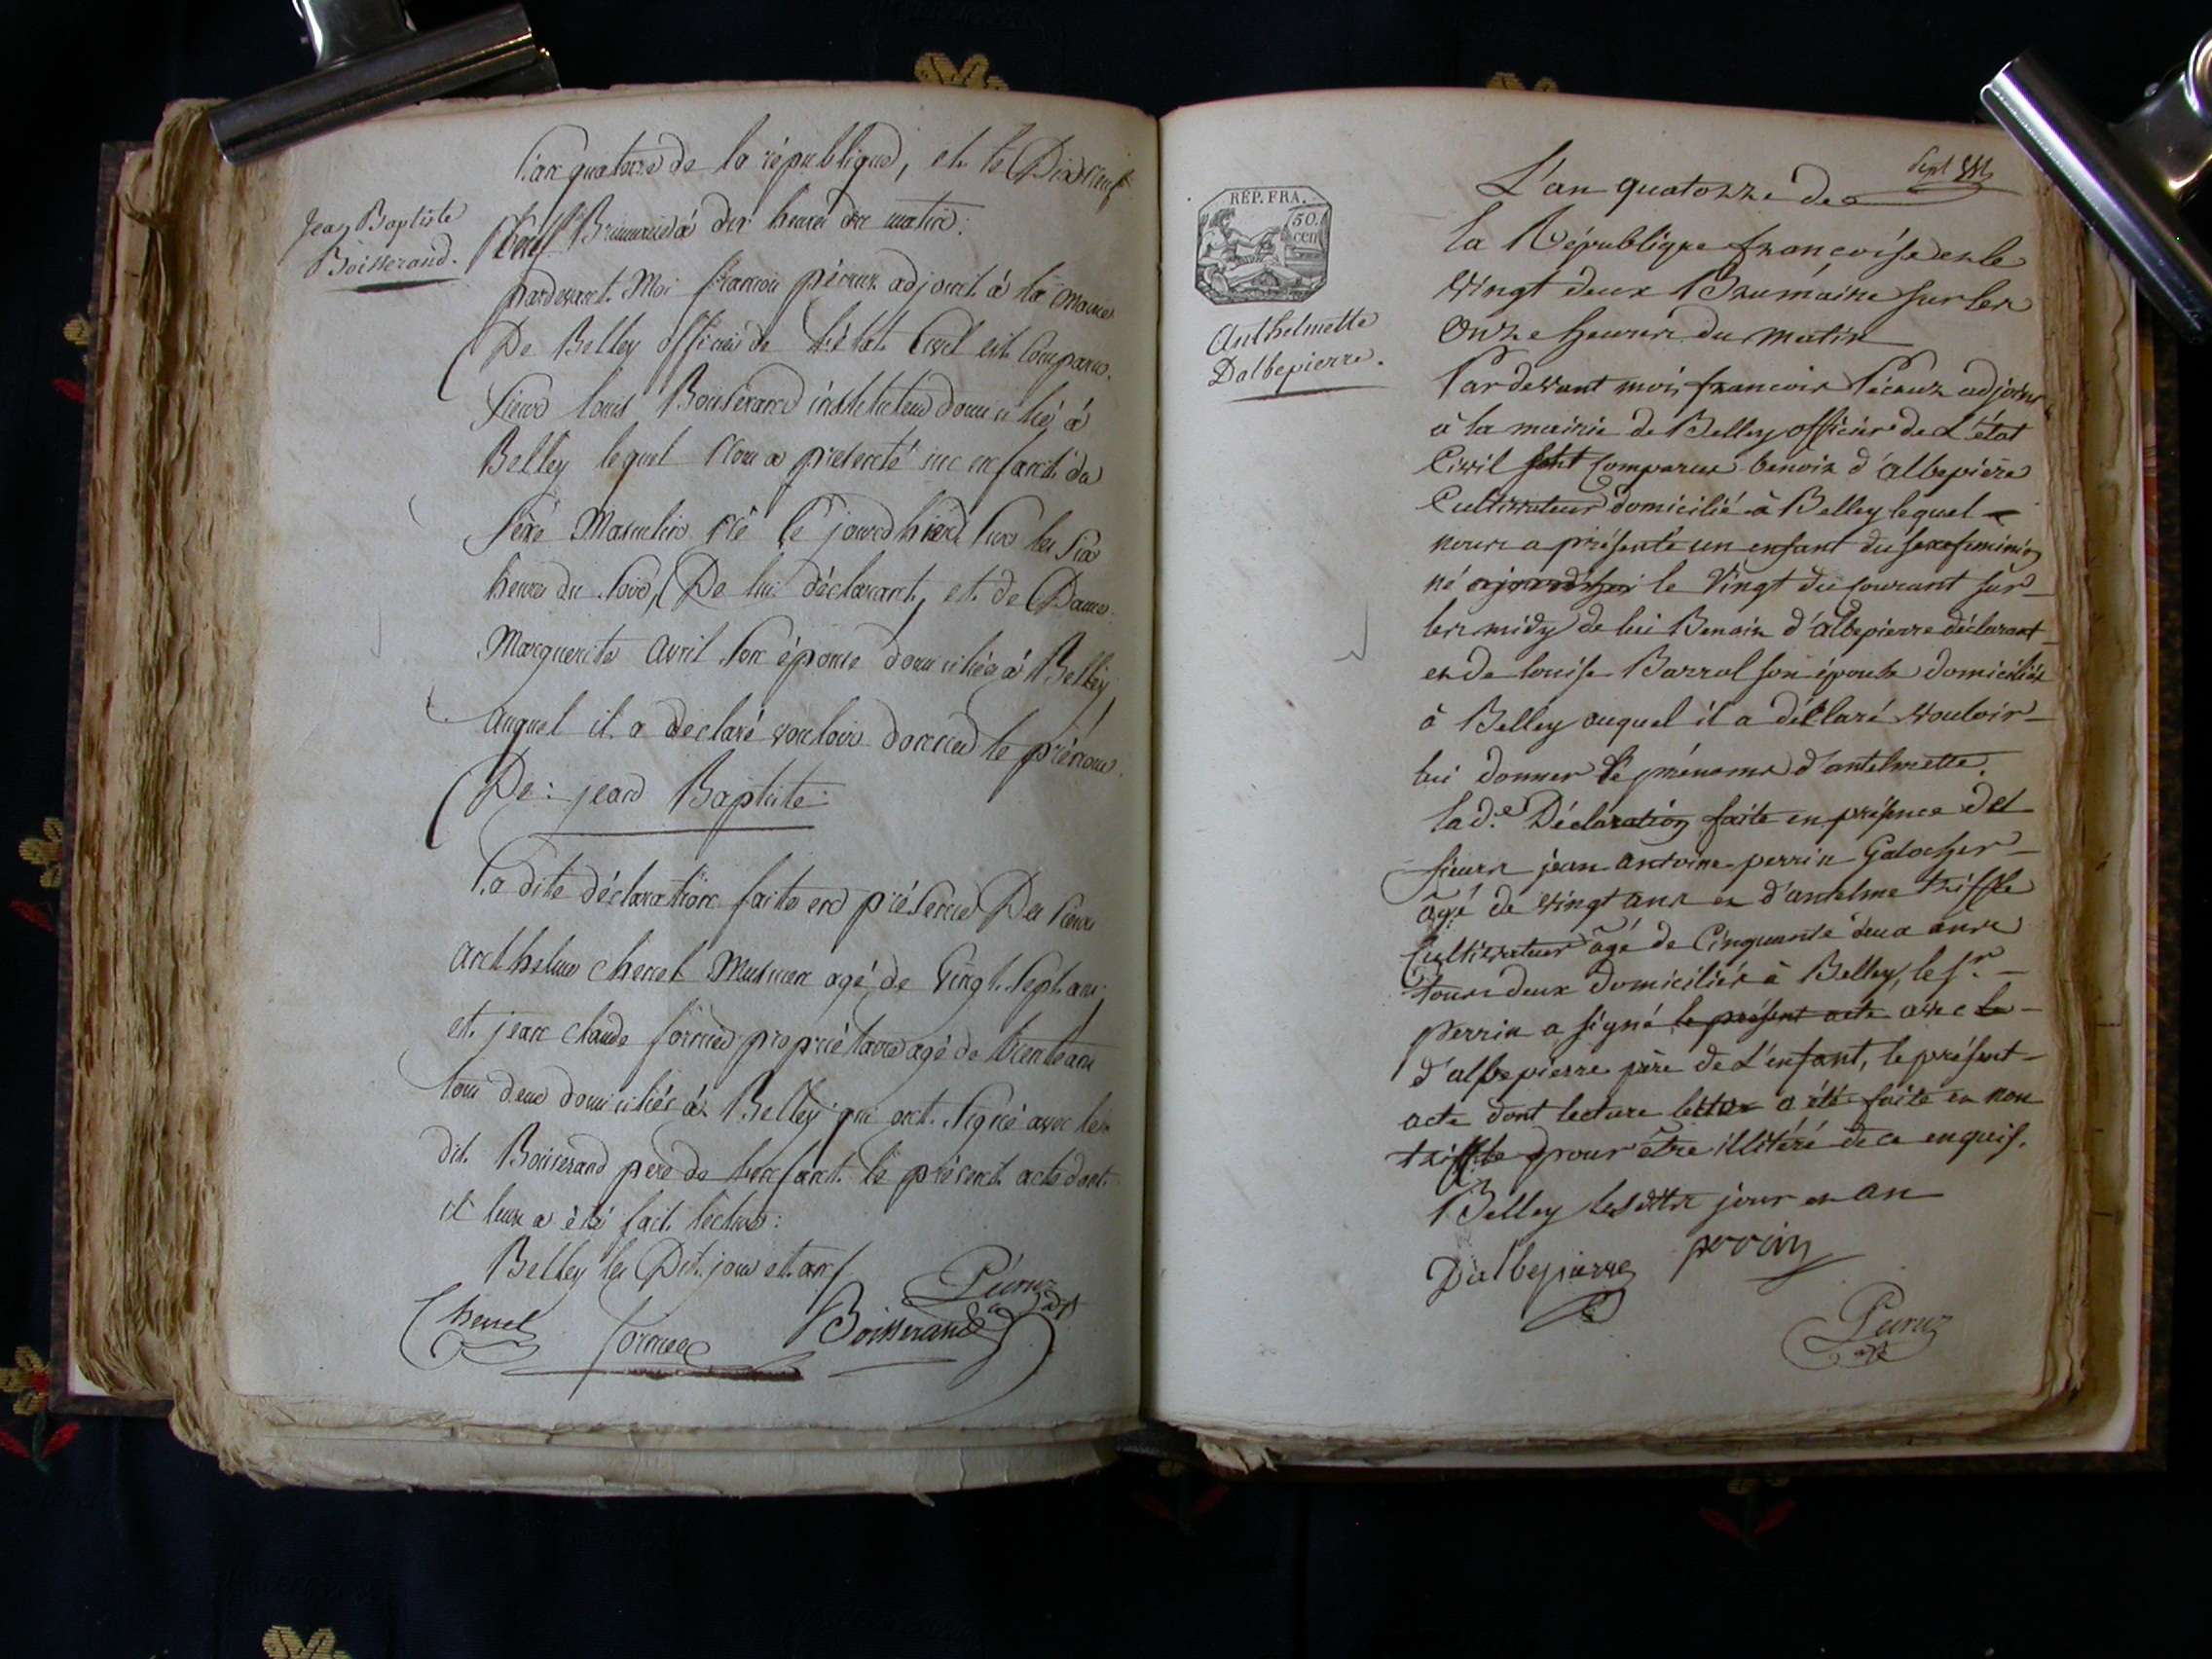 L'an quatorze de la république, et le Dix neuf
Jean Baptiste
Boisserand.
Brumaire à dix heures du matin.
pardevant Moi francois pécruz adjoint à la mairie
De Belley officier de l'état Civil est Comparu.
Sieur Louis Boisserand instituteur domicilié à
Belley lequel Nous a presenté un enfant du
sexe Masculin né le jourd'hier sur les six
heures du soir, De lui déclarant, et de Dame
Marguerite avril son épouse domiciliée à Belley
auquel il a déclaré vouloir donner le prénom.
De : jean Baptiste :
La dite déclaration faite en présence Des sieurs
anthelme chenel Musicien agé de Vingt-Sept ans,
et jean claude fornier propriétaire agé de trente ans
tous deux domiciliés à Belley qui ont signé avec le
dit Boisserand pere de l'enfant le présent acte dont
il leur a été fait lecture :
Belley les Dit jour et an
Chenel
fornier
Boisserand
Pécruz
adjt
RÉP. FRA.
50.
cent
Anthelmette
Dalbepierre.
Sept
L'an quatorze de
la République françoise et le
Vingt deux Brumaire sur les
Onze heures du matin
Pardevant moi, francois Pécruz adjoint
à la mairie de Belley officier de L'état
Civil sont Comparus benoit d'albepierre
Cultivateur domicilié à Belley lequel
nous a présenté un enfant du sexe feminin
né aujourdhui le Vingt du courant sur
les midy de lui Benoit d'albepierre déclarant
et de louise Barral son épouse domiciliés
à Belley auquel il a déclaré vouloir
lui donner le prénoms d'antelmette.
la d.e Déclaration faite en présence des
sieurs jean antoine perrin Galocher
âgé de vingt ans et d'antelme triffle
Cultivateur âgé de Cinquante deux ans
tous deux domiciliés à Belley, le sr.
perrin a signé le présent acte avec le
d'albepierre père de L'enfant, le présent
acte dont lecture a été faite et non
triffle pour être illitéré de ce enquis.
Belley lesdits jour et an
Dalbepierre
perrin
Pécruz
adjt